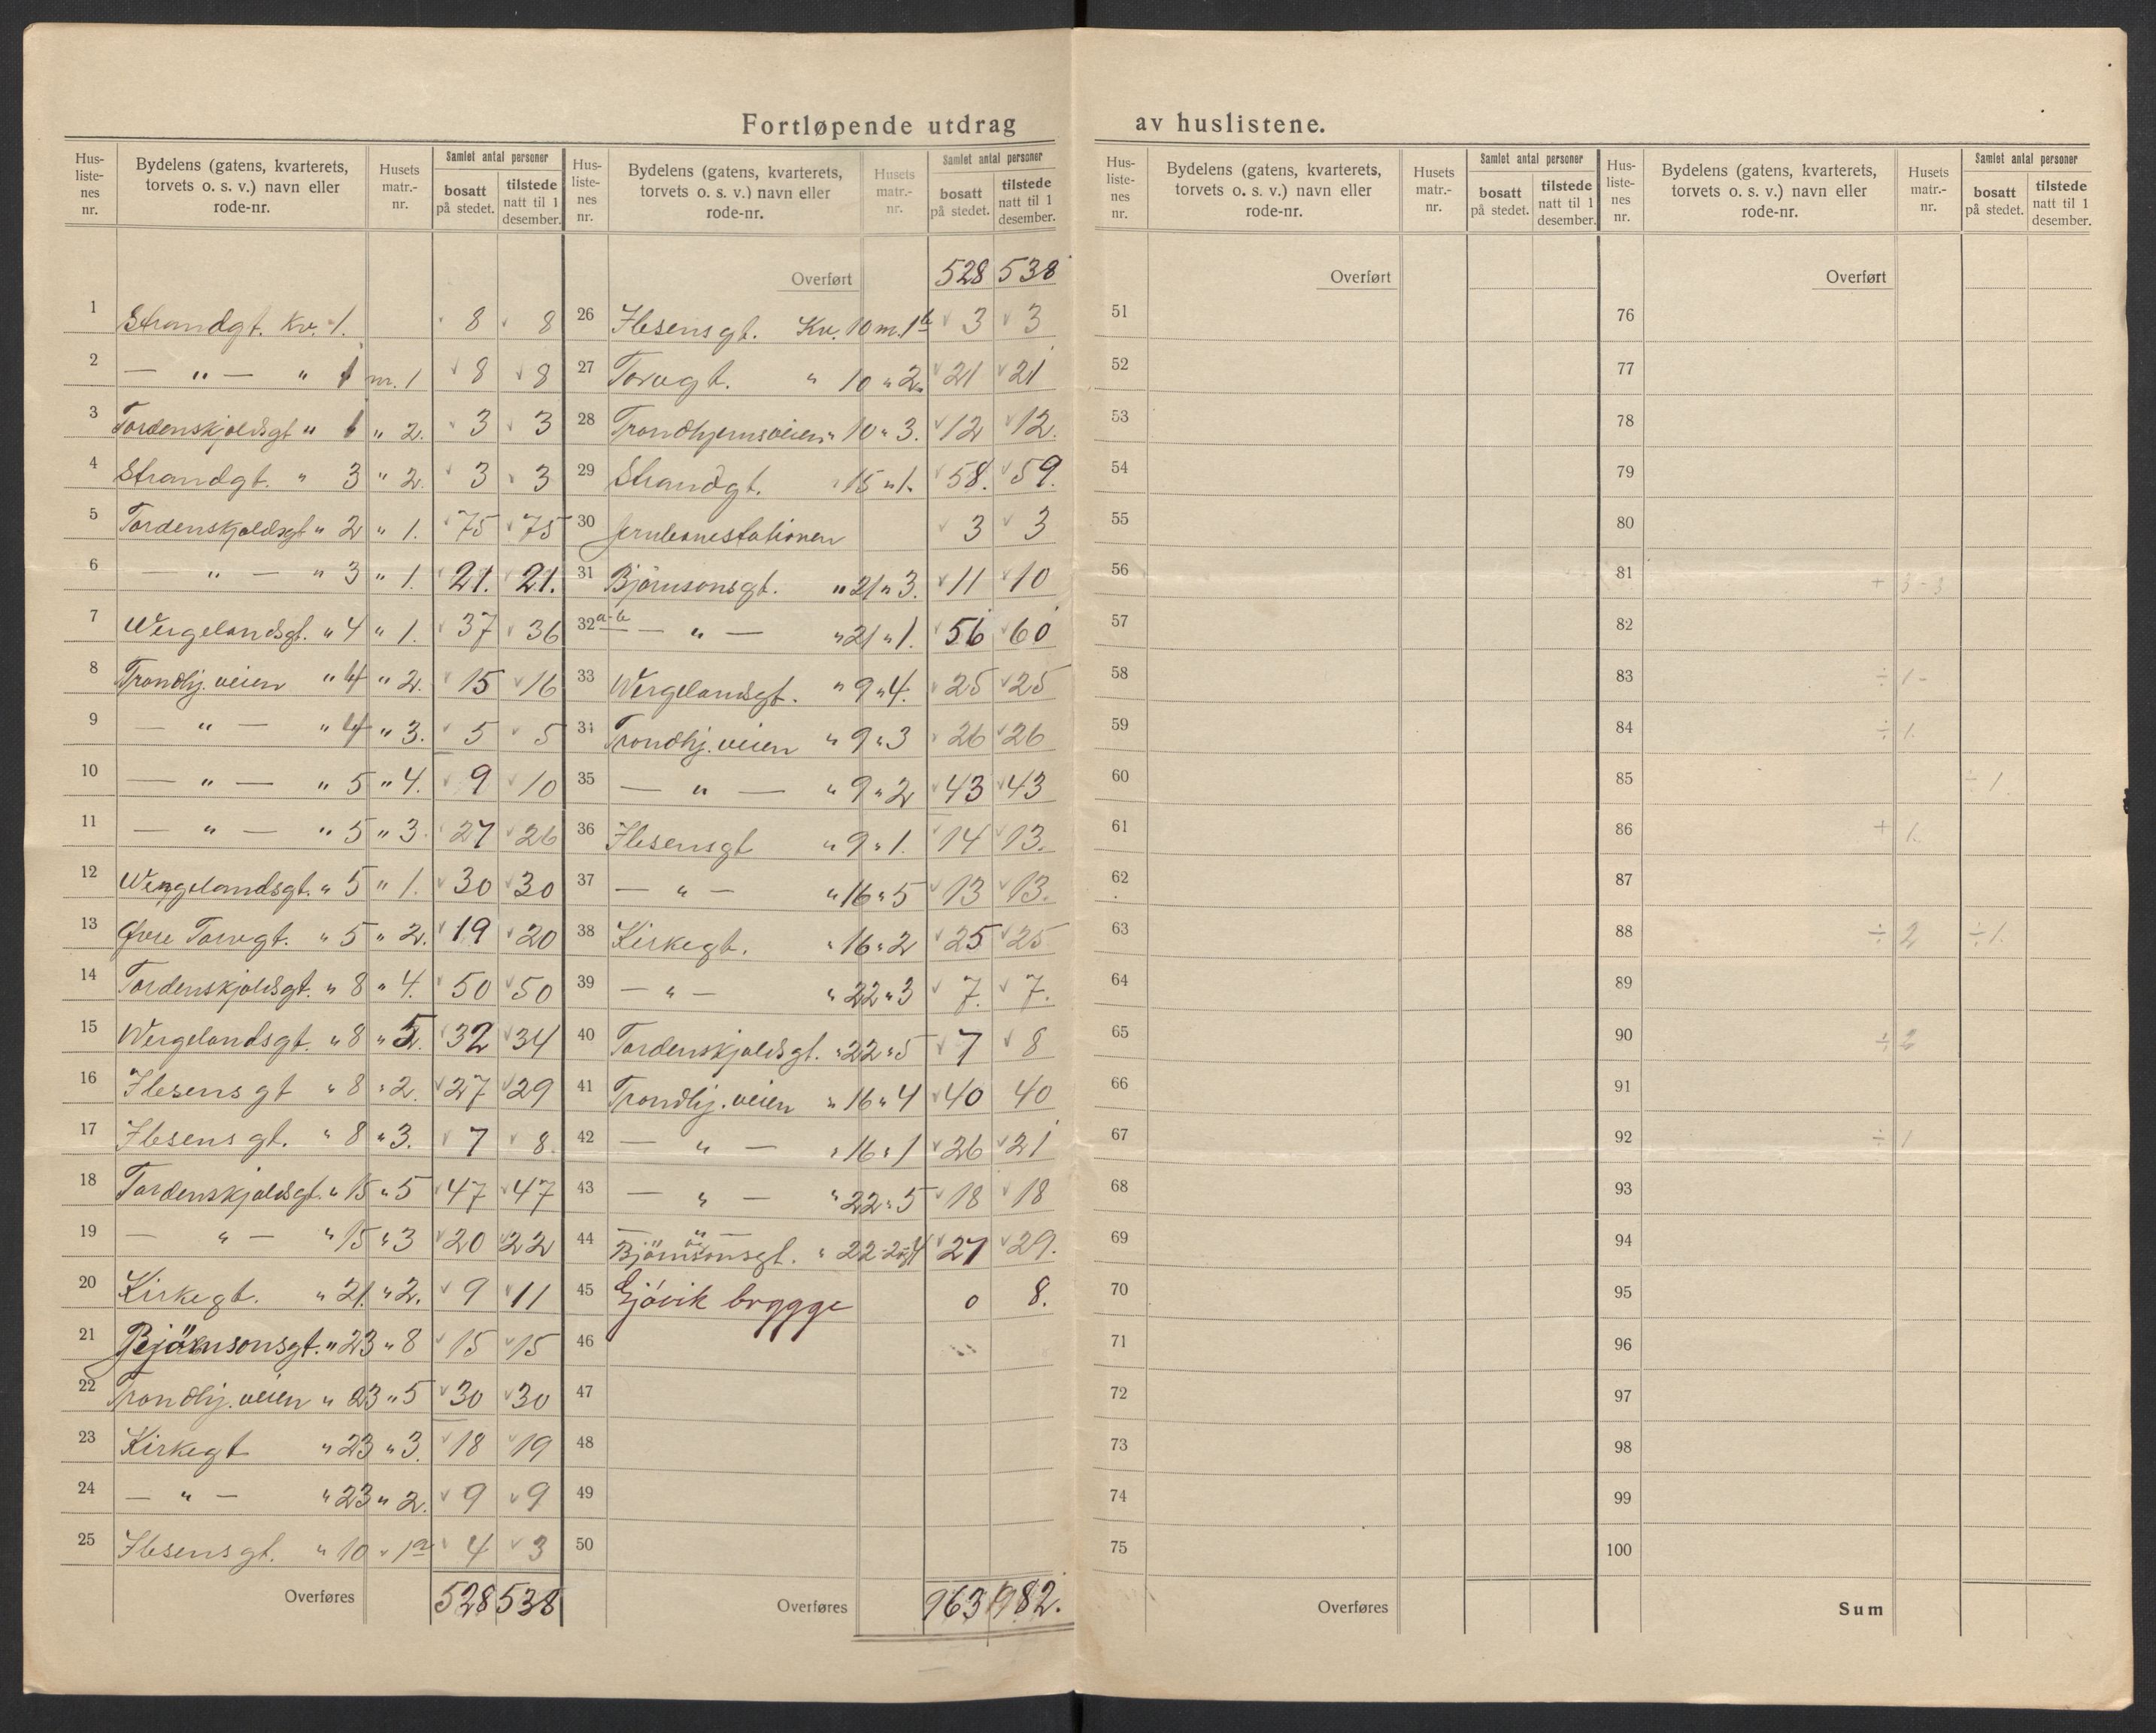 Fortløpende utdrag av huslistene.
Hus-listenes nr. Bydelens (gatens, kvarterets, torvets o. s. v.) navn eller rode-nr. Husets matr.-nr. Samlet antal personer bosatt på stedet. tilstede natt til 1 desember.
1 Strandgt. Kv. 1. 8 8
2 — " — " 1 m. 1 8 8
3 Tordenskjoldsgt " 1 " 2. 3 3
4 Strandgt. " 3 " 2. 3 3
5 Tordenskjoldsgt " 2 " 1. 75 75
6 — " — " 3 " 1. 21. 21.
7 Wergelandsgt. " 4 " 1. 37 36
8 Trondhj. veien " 4 " 2. 15 16
9 — " — " 4 " 3. 5 5
10 — " — " 5 " 4. 9 10
11 — " — " 5 " 3. 27 26
12 Wergelandsgt. " 5 " 1. 30 30
13 Øvre Torvgt. " 5 " 2. 19 20
14 Tordenskjoldsgt. " 8 " 4. 50 50
15 Wergelandsgt. " 8 " 5. 32 34
16 Ibsensgt " 8 " 2. 27 29
17 Ibsensgt. " 8 " 3. 7 8.
18 Tordenskjoldsgt. " 15 " 5 47 47
19 — " — " 15 " 3 20 22
20 Kirkegt. " 21. " 2. 9 11
21 Bjørnsonsgt. " 23 " 8 15 15
22 Trondhj. veien " 23 " 5 30 30
23 Kirkegt " 23 " 3. 18 19
24 — " — " 23 " 2. 9 9
25 Ibsensgt. " 10 " 1a 4 3
Overføres 528 538
Hus-listenes nr. Bydelens (gatens, kvarterets, torvets o. s. v.) navn eller rode-nr. Husets matr.-nr. Samlet antal personer bosatt på stedet. tilstede natt til 1 desember.
Overført 528 538
26 Ibsensgt. Kv. 10 m. 1b 3 3
27 Torvgt. " 10 " 2. 21 21
28 Trondhjemsveien " 10 " 3. 12 12.
29 Strandgt. " 15 " 1. 58. 59.
30 Jernbanestationen 3 3
31 Bjørnsonsgt. " 21 " 3. 11 10
32 a-b — " — " 21 " 1. 56 60
33 Wergelandsgt. " 9 " 4. 25 25
34 Trondhj. veien " 9 " 3 26 26
35 — " — " 9 " 2 43 43
36 Ibsensgt " 9 " 1. 14 13.
37 — " — " 16 " 5 13 13.
38 Kirkegt. " 16 " 2 25 25
39 — " — " 22 " 3 7. 7.
40 Tordenskjoldsgt. " 22 " 5 7 8
41 Trondhj. veien " 16 " 4 40 40
42 — " — " 16 " 1 26 21
43 — " — " 22 " 5 18 18
44 — " — og Bjørnsonsgt. " 22 - 2 og 4 27 29.
45 Gjøvik brygge 0 8.
46
47
48
49
50
Overføres 963 982.
Hus-listenes nr. Bydelens (gatens, kvarterets, torvets o. s. v.) navn eller rode-nr. Husets matr.-nr. Samlet antal personer bosatt på stedet. tilstede natt til 1 desember.
Overført
51
52
53
54
55
56
57
58
59
60
61
62
63
64
65
66
67
68
69
70
71
72
73
74
75
Overføres
Hus-listenes nr. Bydelens (gatens, kvarterets, torvets o. s. v.) navn eller rode-nr. Husets matr.-nr. Samlet antal personer bosatt på stedet. tilstede natt til 1 desember.
Overført
76
77
78
79
80
81 + 3 - 3
82
83 ÷ 1 -
84 ÷ 1.
85 ÷ 1.
86 + 1.
87
88 ÷ 2 ÷ 1.
89
90 ÷ 2
91
92 ÷ 1
93
94
95
96
97
98
99
100
Sum